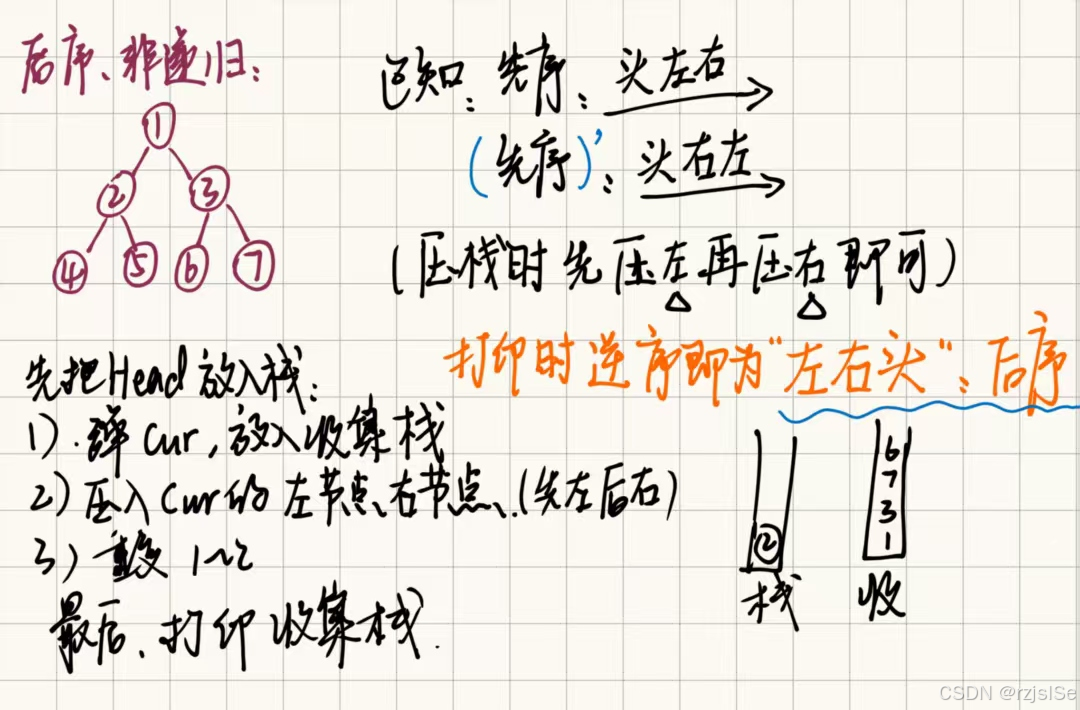 后序、非递归：
1
2 3
4 5 6 7
已知：先序：头左右
(先序)'：头右左
(压栈时先压左再压右即可)
打印时逆序即为"左右头"：后序
先把Head放入栈：
1). 弹cur，放入收集栈
2) 压入cur的左节点、右节点、(先左后右)
3) 重复 1~2
最后、打印收集栈.
6
7
3
2 1
栈 收
CSDN @rzjslSe